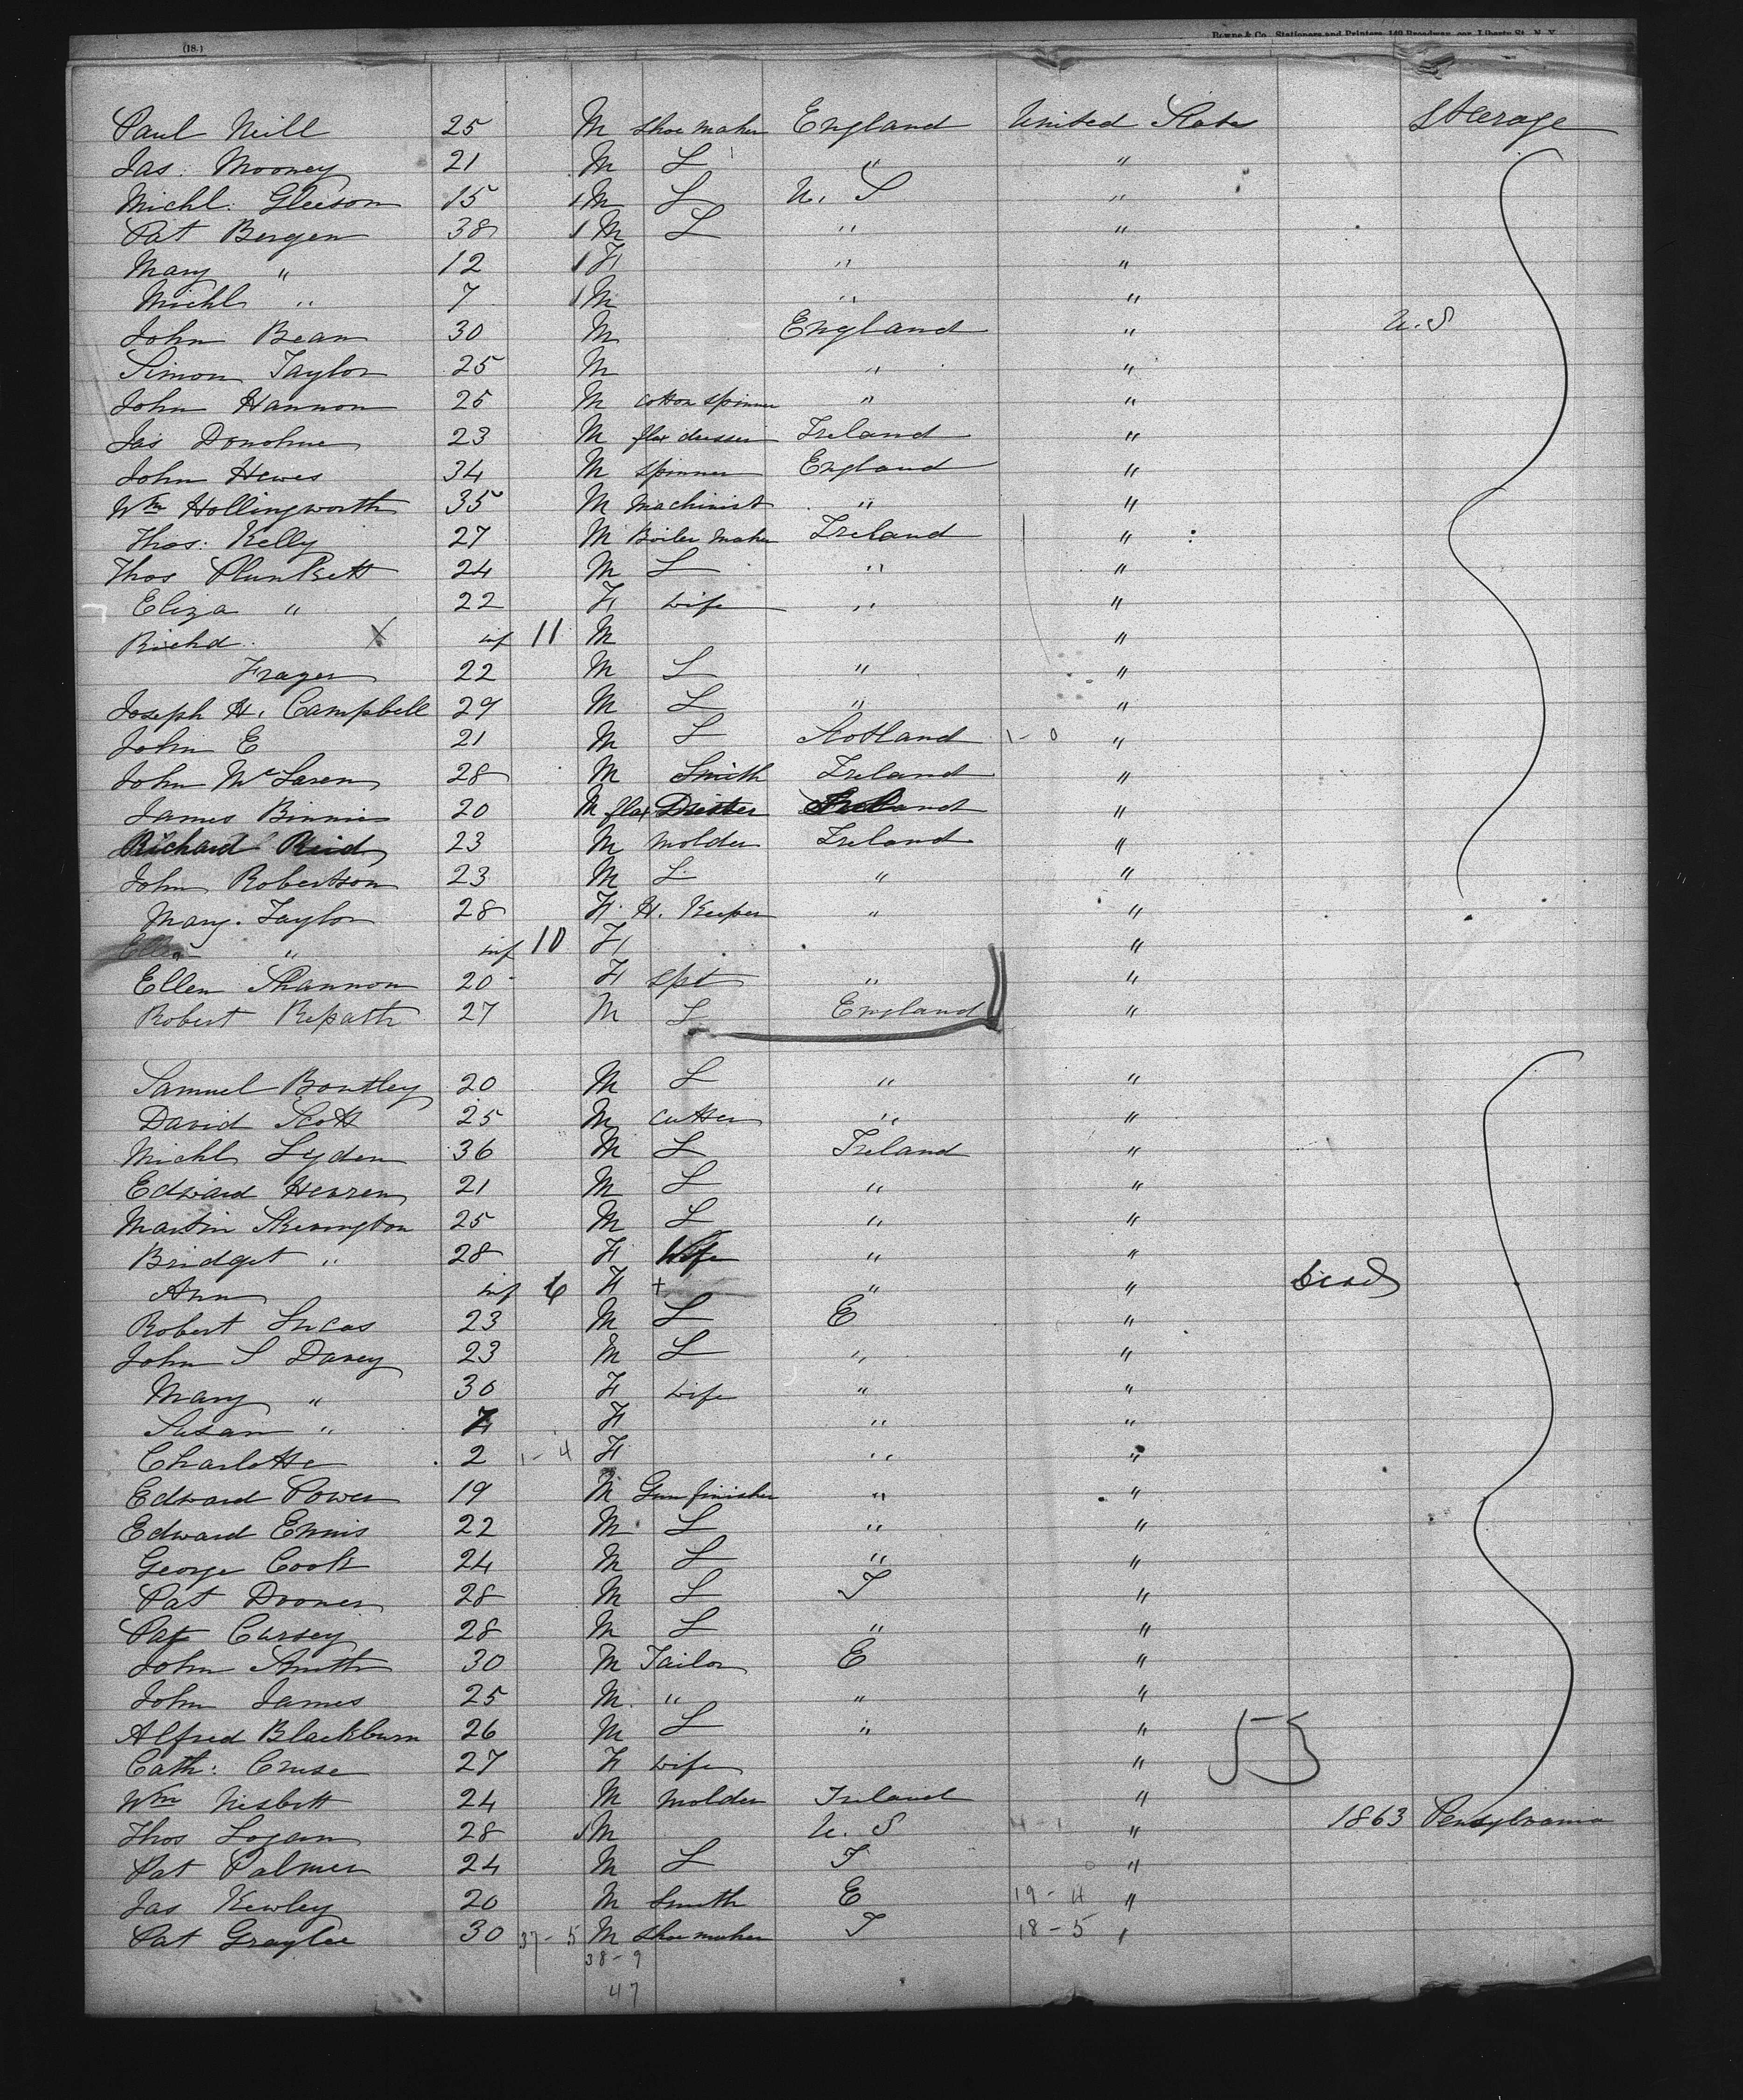 (18.) Bowne & Co., Stationers and Printers, 149 Broadway, cor. Liberty St., N. Y.
Paul Neill 25 M Shoe maker England United States Steerage
Jas: Mooney 21 M L " "
Michl. Gleeson 15 M L U. S "
Pat Bergen 38 M L " "
Mary " 12 F " "
Michl " 7 M " "
John Bean 30 M England " U.S
Simon Taylor 25 M " "
John Hannon 25 M Cotton Spinner " "
Jas Donohue 23 M flax dresser Ireland "
John Hewes 34 M Spinner England "
Wm Hollingworth 35 M Machinist " "
Thos: Kelly 27 M Boiler Maker Ireland "
Thos Plunkett 24 M L " "
Eliza " 22 F Wife " "
Richd X inf 11 M "
Frazer 22 M L " "
Joseph H. Campbell 29 M L " "
John E 21 M L Scotland 1-0 "
John McLaren 28 M Smith Ireland "
James Binnie 20 M flax Ireland "
Richard Reid 23 M Molder Ireland "
John Robertson 23 M L " "
Mary Taylor 28 F H. Keeper " "
" inf 10 F "
Ellen Shannon 20 F Spt " "
Robert Repath 27 M L England "
Samuel Bontley 20 M L " "
David Scott 25 M Cutter " "
Michl Lyden 36 M L Ireland "
Edward Henren 21 M L " "
Martin Skevington 25 M L " "
Bridget " 28 F Wife " "
Ann inf 6 F + " " Dead
Robert Lucas 23 M L E "
John S Davey 23 M L " "
Mary " 30 F Wife " "
Susan " F " "
Charlotte 2 1-4 F " "
Edward Power 19 M Gun finisher " "
Edward Ennis 22 M L " "
George Cook 24 M L " "
Pat Drones 28 M L I "
Pat Cursey 28 M L " "
John Smith 30 M Tailor E "
John James 25 M " " "
Alfred Blackburn 26 M L " " 55
Cath: Cruse 27 F Wife "
Wm Nisbett 24 M Molder Ireland "
Thos Logan 28 M U. S 4-1 " 1863 Pensylvania
Pat Palmer 24 M L I "
Jas Kewley 20 M Smith E 19-4 "
Pat Graylee 30 37-5 M Shoe maker I 18-5 "
38-9
47